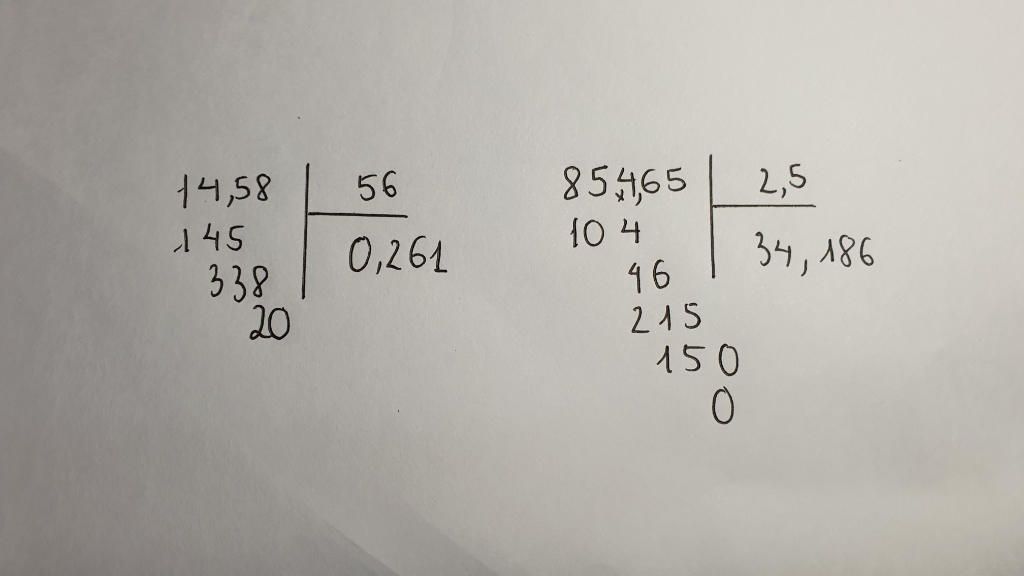 14,58 56
145 0,261
338
20
85,4,65 2,5
104 34,186
46
215
150
0